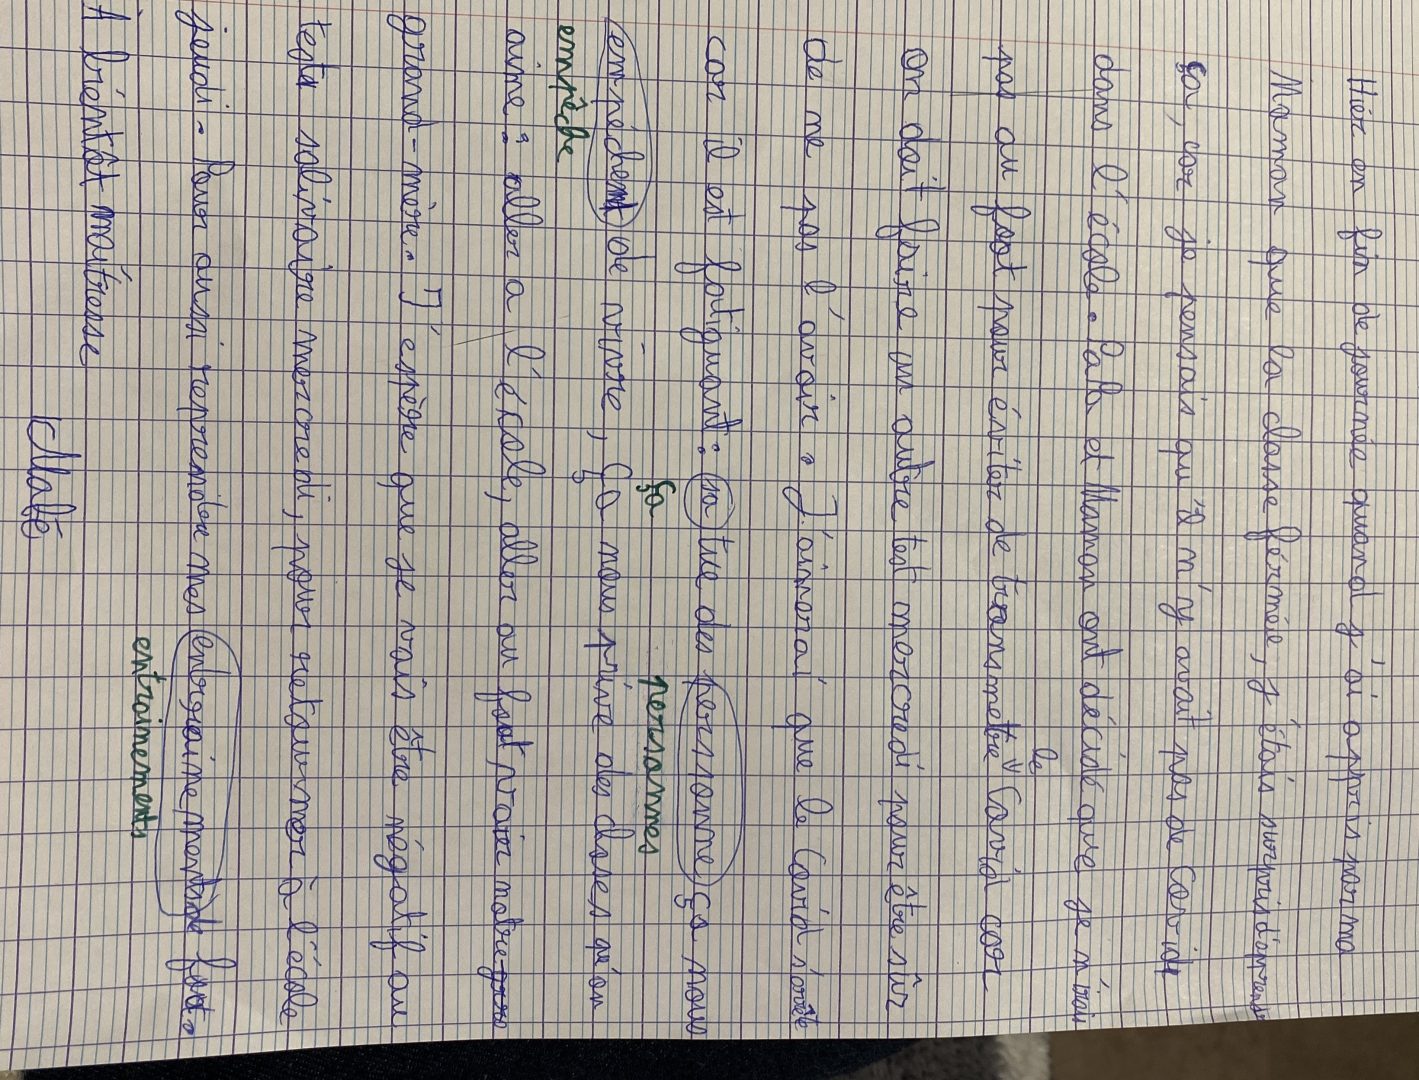 Hier en fin de journée quand j'ai appris parma
Maman que la classe férmée, j'étais surpris d'aprendr
ça, car je pensais qu'il n'y avait pas de Covid
dans l'école. Pah et Maman ont décidé que je n'irais
le
pas au foot pour éviter de transmettre Covid car
on doit faire un autre test mercredi pour être sûr
de ne pas l'avoir. J'aimerai que le Covid s'arrête
car il est fatiguant: sa tue des perssonne, ça nous
ça personnes
empéchent de vivre, ça nous prive des choses qu'on
empêche
aime: aller a l'école, aller au foot, voir notre
grand-mère. J'espère que je vais être négatif au
teste salivaire mercredi, pour retourner à l'école
jeudi. Pour aussi reprendre mes entraînements de foot.
entrainements
A biéntôt maîtresse
Malé